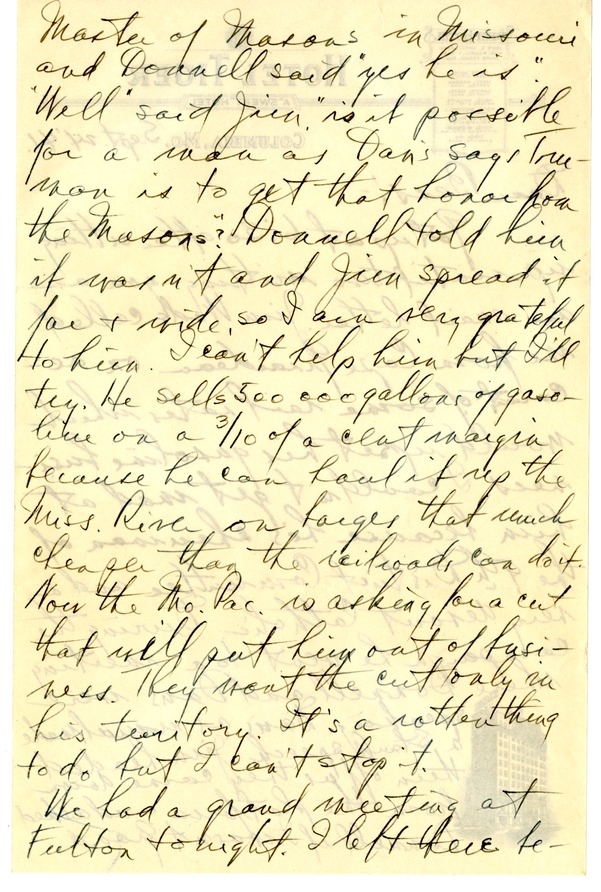 Master of Masons in Missouri
and Donnell said "yes he is".
"Well" said Jim, "is it possible
for a man as Davis says Tru-
man is to get that honor from
the Masons"? Donnell told him
it wasn't and Jim spread it
far & wide, so I am very grateful
to him. I can't help him but I'll
try. He sells 500 000 gallons of gaso-
line on a 3/10 of a cent margin
because he can haul it up the
Miss. River on barges that much
cheaper than the railroads can do it.
Now the Mo. Pac. is asking for a cut
that will put him out of busi-
ness. They want the cut only in
his territory. It's a rotten thing
to do but I can't stop it.
We had a grand meeting at
Fulton tonight. I left there be-